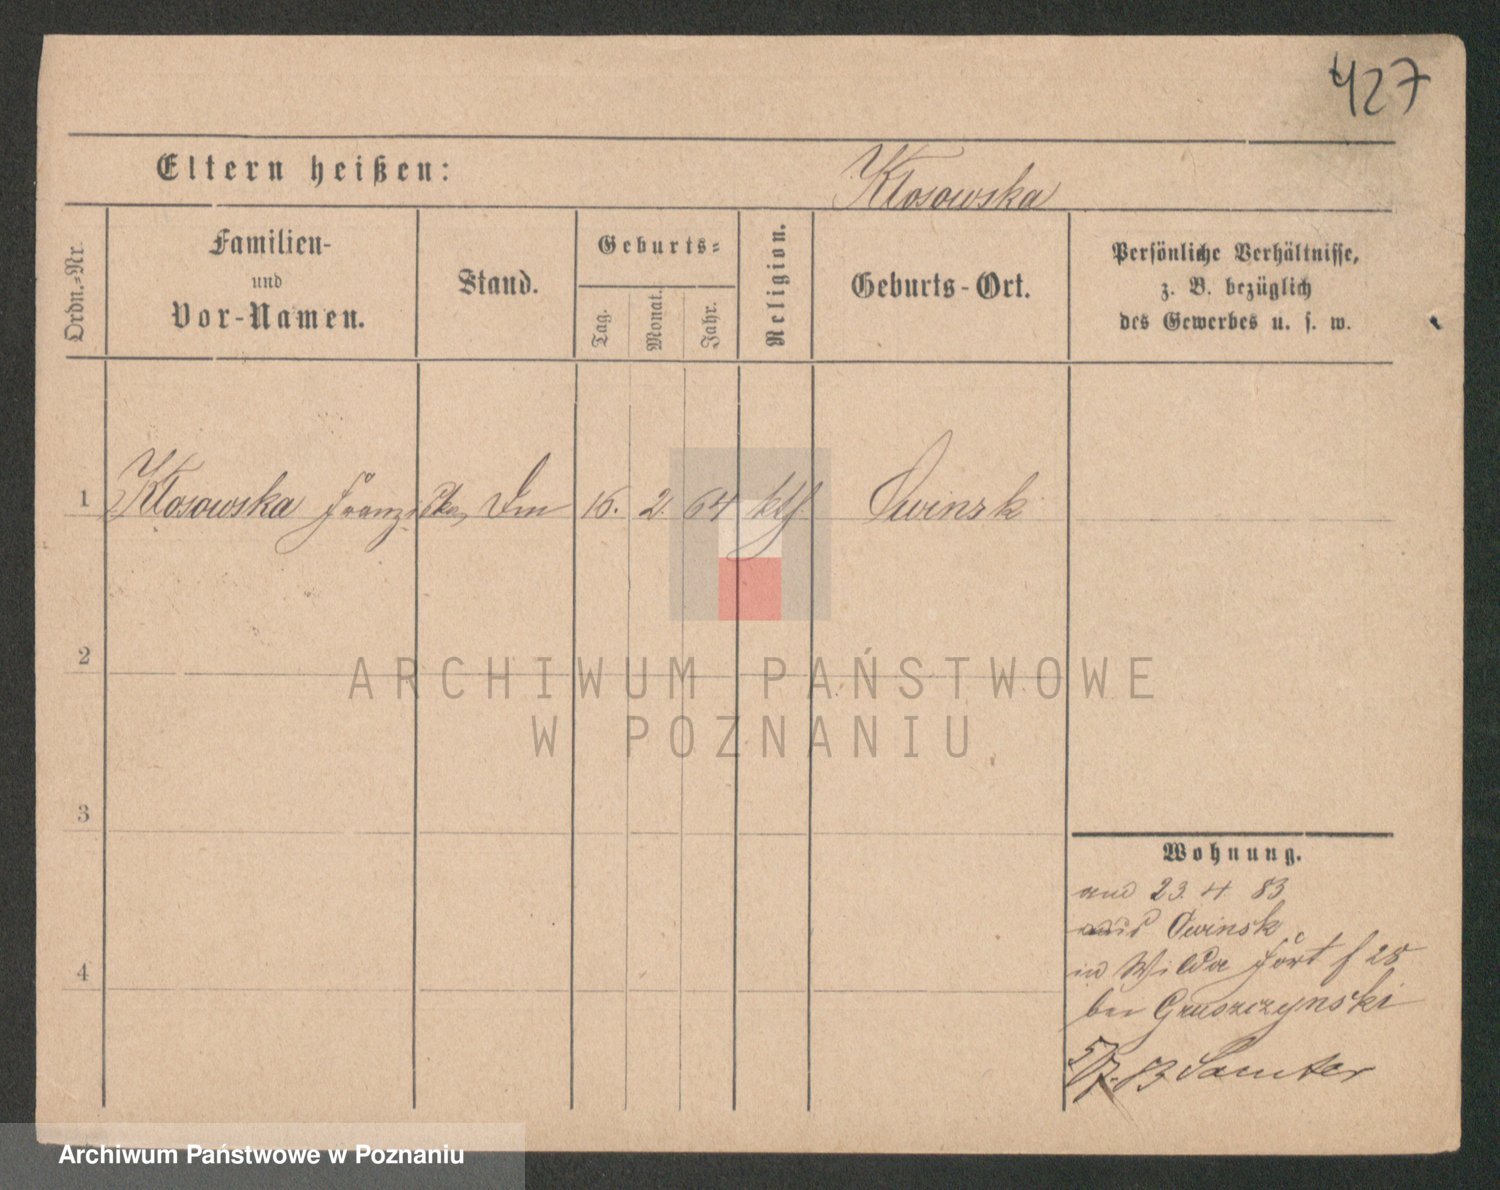 427
Eltern heißen:
Kłosowska
Ordn.-Nr.
Familien-
und
Vor-Namen.
Stand.
Geburts-
Tag.
Monat.
Jahr.
Religion.
Geburts-Ort.
Persönliche Verhältnisse,
z. B. bezüglich
des Gewerbes u. s. w.
1 Kłosowska Franziska 16. 2. 64 kth Owinsk
2
3
4
ARCHIWUM PAŃSTWOWE
W POZNANIU
Wohnung.
23. 4 83
aus Owinsk
in Wilda Fort f 25
bei Gruszczynski
5/7. 83 Samter
Archiwum Państwowe w Poznaniu